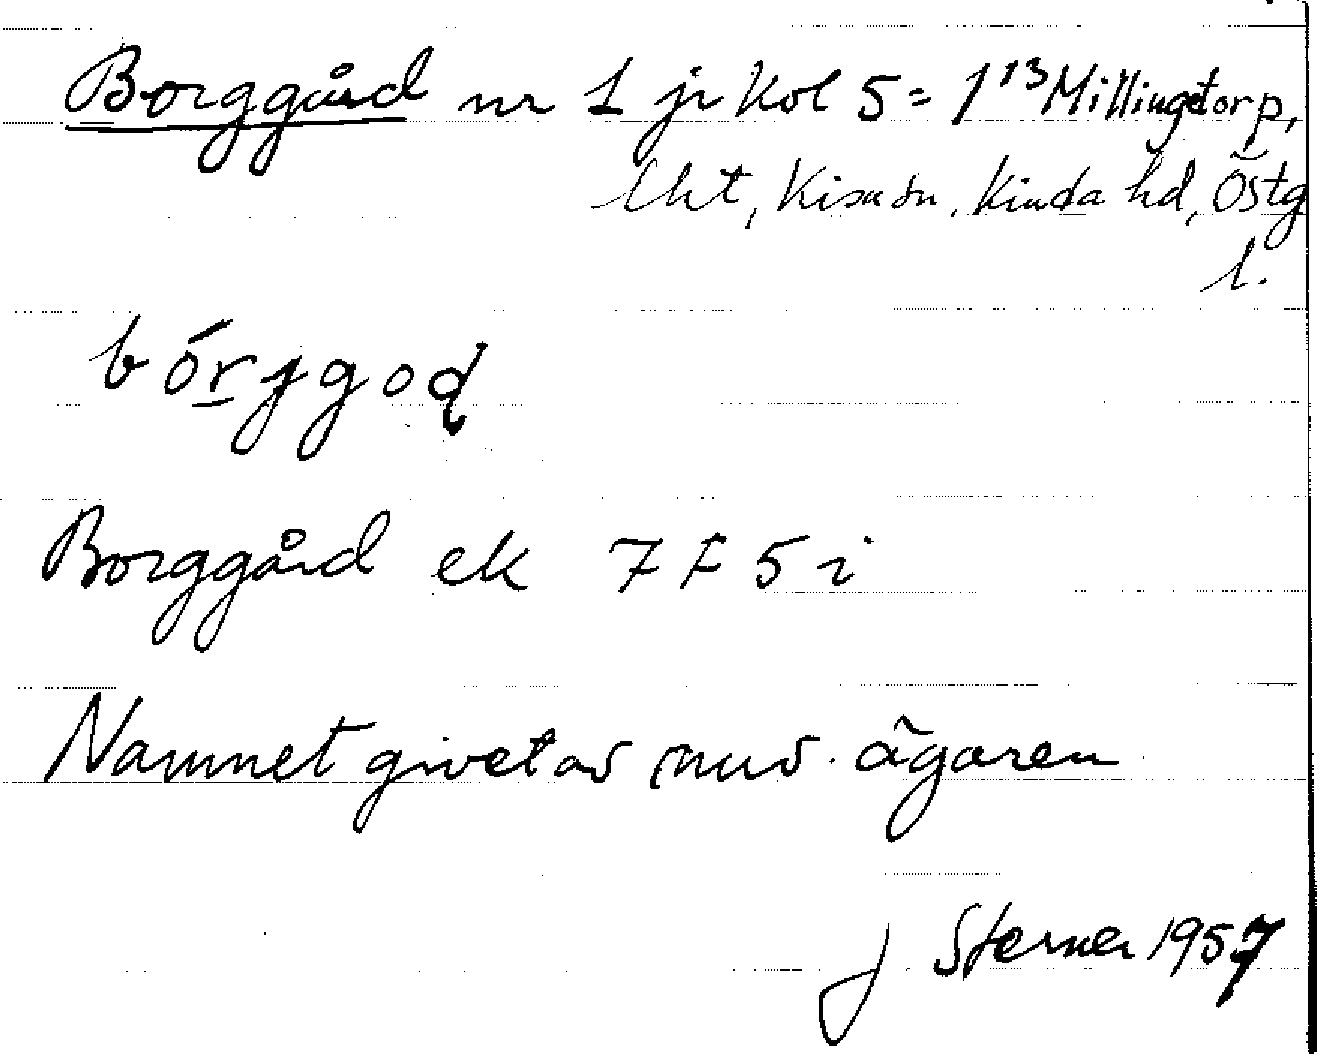 Borggård nr 1 jr kol 5 = 1¹³ Millingetorp,
lht, Kisa sn, Kinda hd, Östg
l.
bórjgod
Borggård ek 7F5i
Namnet givet av nuv. ägaren
J Sterner 1957